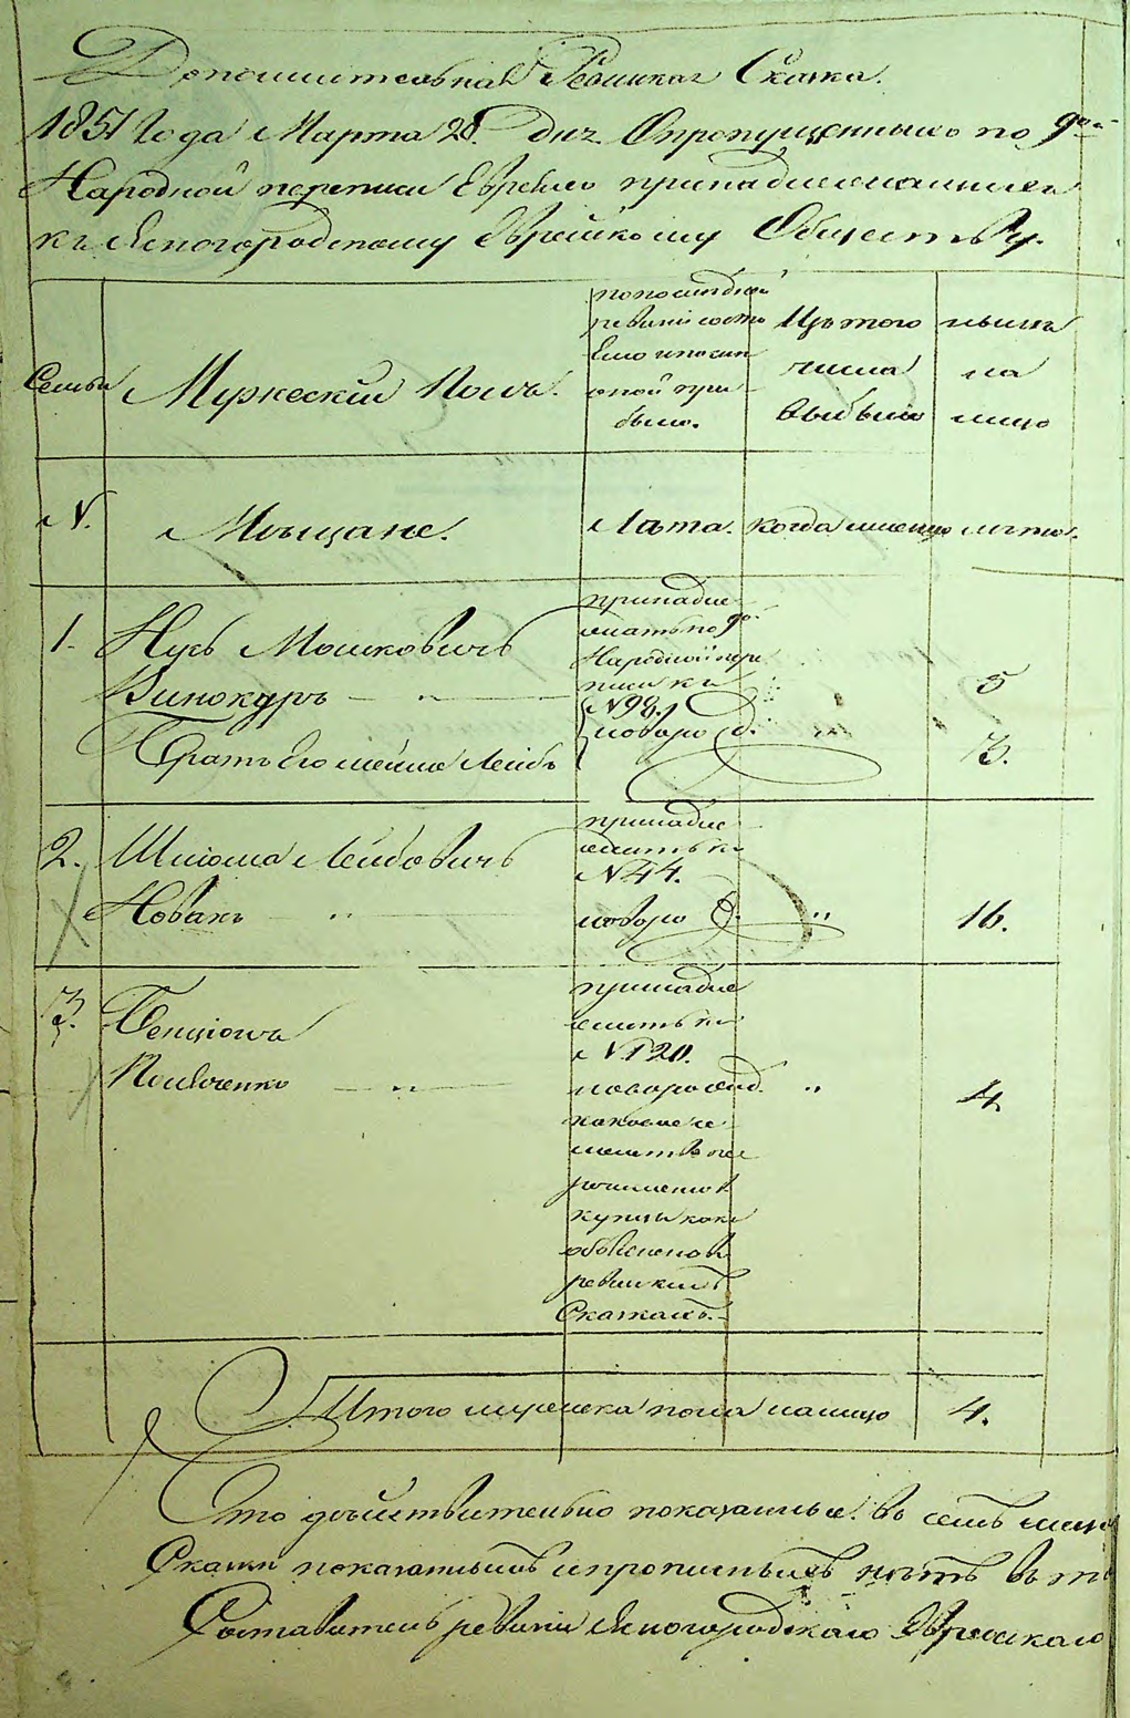 Дополнительная Ревизская Сказка.
1851 Года Марта 28. дня. О пропущенныхъ по 9й
Народной переписи Евреевъ принадлежавшихъ
къ Ясногородскому Еврейскому Обществу.
Семьи
Мужеский Полъ.
по последней
ревизии состо
яло и после
оной при
было.
Изъ того
числа
выбыло
ныне
на
лицо
N.
Мѣщане.
Лѣта.
когда именно
лѣта.
1.
Нусь Мошковичъ
Винокуръ — " —
Братъ Его Лейбъ
принадле
жатъ по 9й
Народной пере
писи къ
N 98.
новоро д.
5
3.
2.
Шлиома Лейбовичъ
Новакъ — " —
принадле
житъ къ
N 44.
новоро д.
"
16.
3.
Бенционъ
Поляченко — " —
принадле
житъ къ
N 120.
новорожд.
"
4.
купцы какъ
объяснено въ
ревизкихъ
Сказкахъ.
Итого мужеска пола налицо
4.
Что действительно показанные въ семъ
Сказки показательствъ и прописныхъ нѣтъ въ т
Составитель ревизии Ясногородскаго Еврейскаго